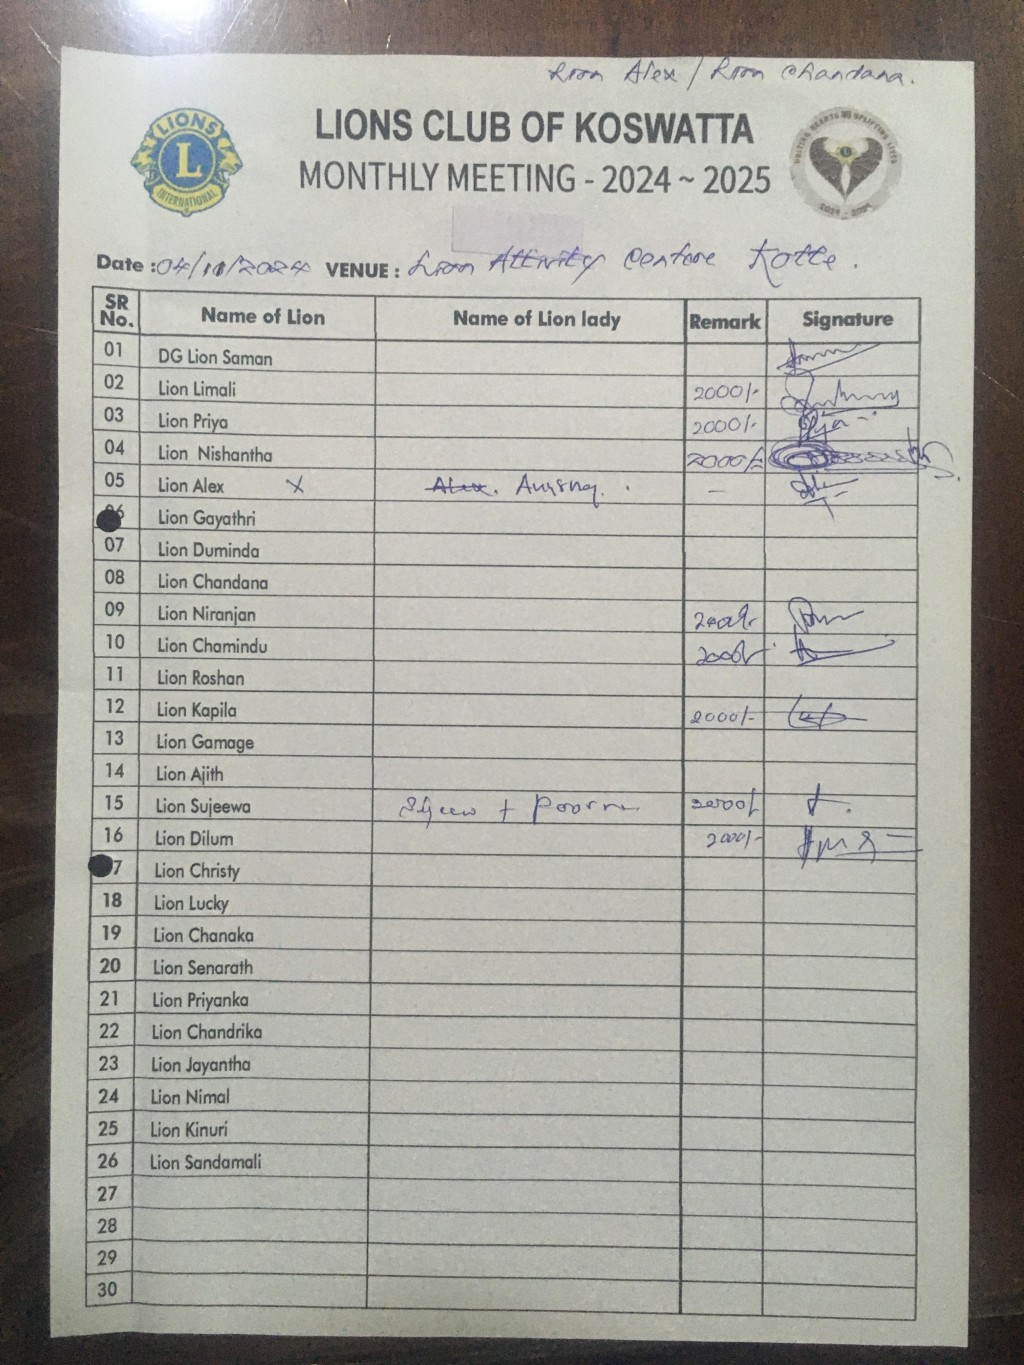 Lion Alex / Lion Chandana.
LIONS
L
INTERNATIONAL
LIONS CLUB OF KOSWATTA
MONTHLY MEETING - 2024 ~ 2025
UNITING HEARTS UPLIFTING LIVES
2024 - 2025
Date : 04/10/2024 VENUE : Lion Activity Centre Kotte.
SR No. Name of Lion Name of Lion lady Remark Signature
01 DG Lion Saman
02 Lion Limali 2000/-
03 Lion Priya 2000/-
04 Lion Nishantha 2000/-
05 Lion Alex X Alex. -
06 Lion Gayathri
07 Lion Duminda
08 Lion Chandana
09 Lion Niranjan 2000/-
10 Lion Chamindu 2000/-
11 Lion Roshan
12 Lion Kapila 2000/-
13 Lion Gamage
14 Lion Ajith
15 Lion Sujeewa + Poorni
16 Lion Dilum 2000/-
17 Lion Christy
18 Lion Lucky
19 Lion Chanaka
20 Lion Senarath
21 Lion Priyanka
22 Lion Chandrika
23 Lion Jayantha
24 Lion Nimal
25 Lion Kinuri
26 Lion Sandamali
27
28
29
30